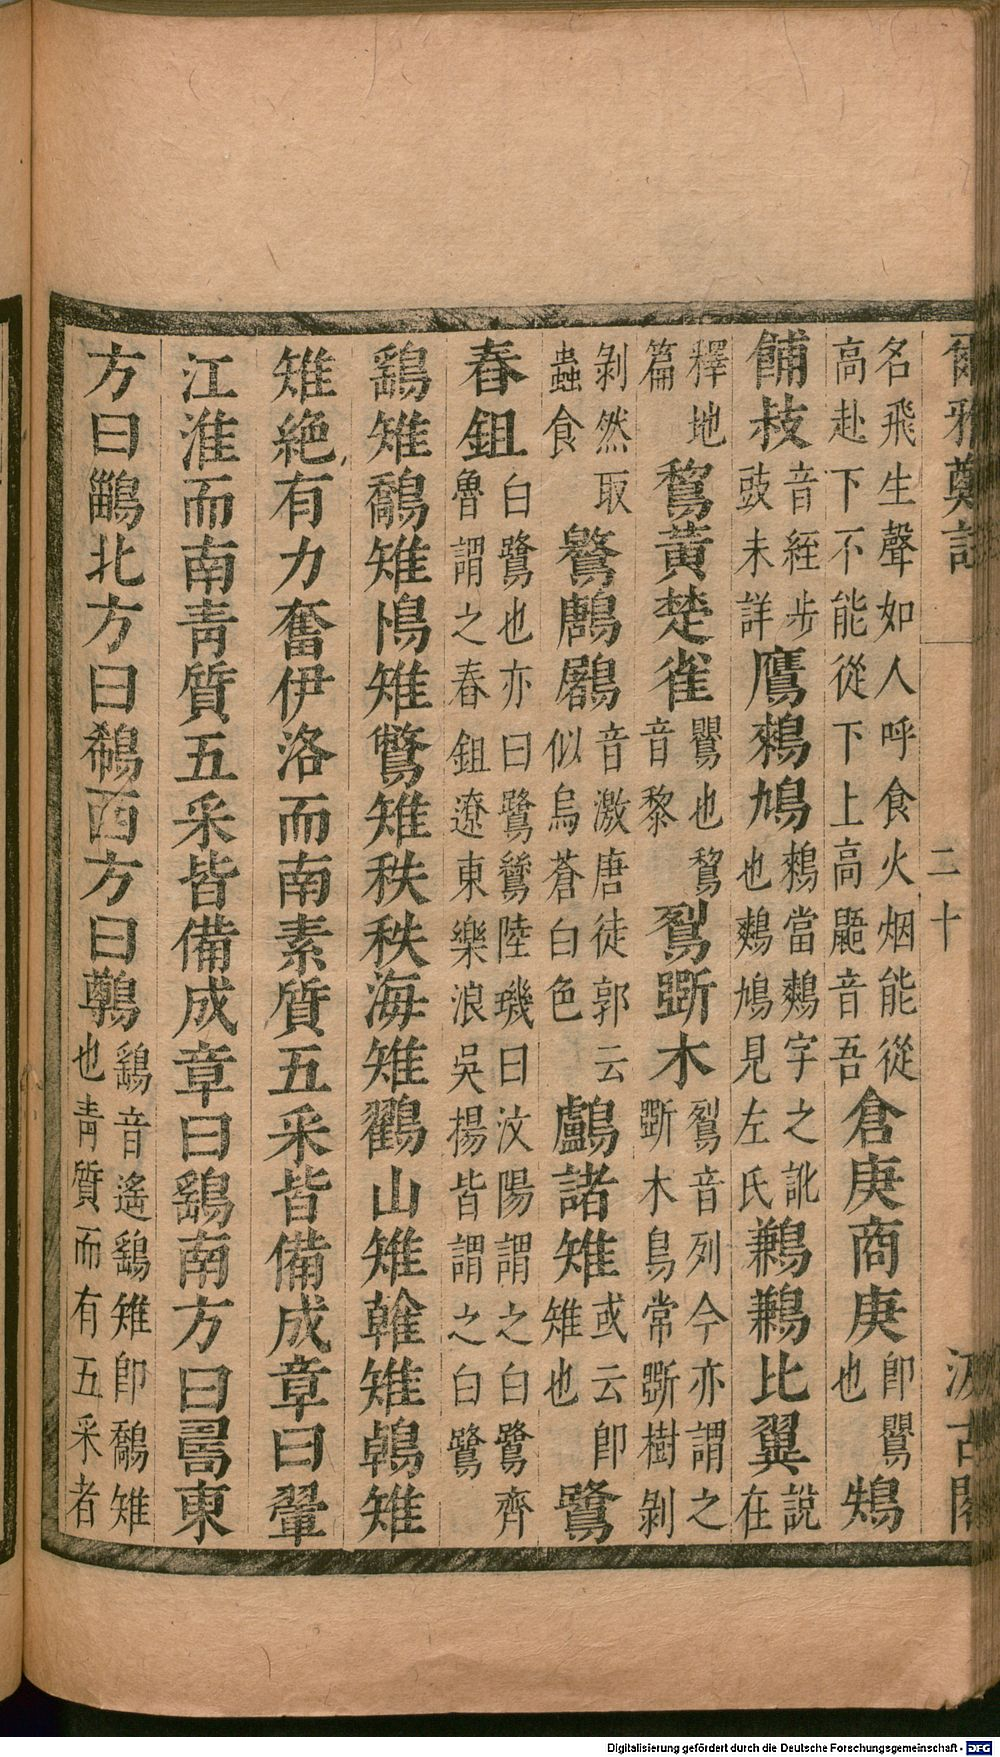 爾雅鄭註 二十 汲古閣
名飛生聲如人呼食火烟能從高赴下不能從下上高鼯音吾倉庚商庚即鸎也鴩
餔敊音絰步豉未詳鷹鶆鳩鶆當鷞字之訛也鷞鳩見左氏鶼鶼比翼說在
釋地篇鵹黃楚雀鸎也鵹音黎鴷斲木鴷音列今亦謂之斲木鳥常斲樹剝
剝然取蟲食鸄鶶鷵音激唐徒郭云似烏蒼白色鸕諸雉或云即雉也鷺
舂鉏白鷺也亦曰鷺鷥陸璣曰汶陽謂之白鷺齊魯謂之舂鉏遼東樂浪吳揚皆謂之白鷺
鷂雉鷮雉鳪雉鷩雉秩秩海雉鸐山雉雗雉鵫雉
雉絕有力奮伊洛而南素質五采皆備成章曰翬
江淮而南青質五采皆備成章曰鷂南方曰𠷎東
方曰鶅北方曰鵗西方曰鷷鷂音遙鷂雉即鷮雉也青質而有五采者
Digitalisierung gefördert durch die Deutsche Forschungsgemeinschaft - DFG